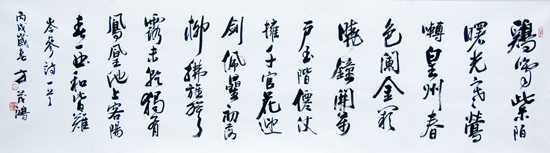 鷄鳴紫陌
曙光寒鶯
囀皇州春
色闌金闕
曉鐘開萬
戶玉階僊仗
擁千官花迎
劍佩曐初落
柳拂旌旗
露未乾獨有
鳳凰池上客陽
春一曲和皆難
岑參詩一首
丙戌歲春方茂鴻